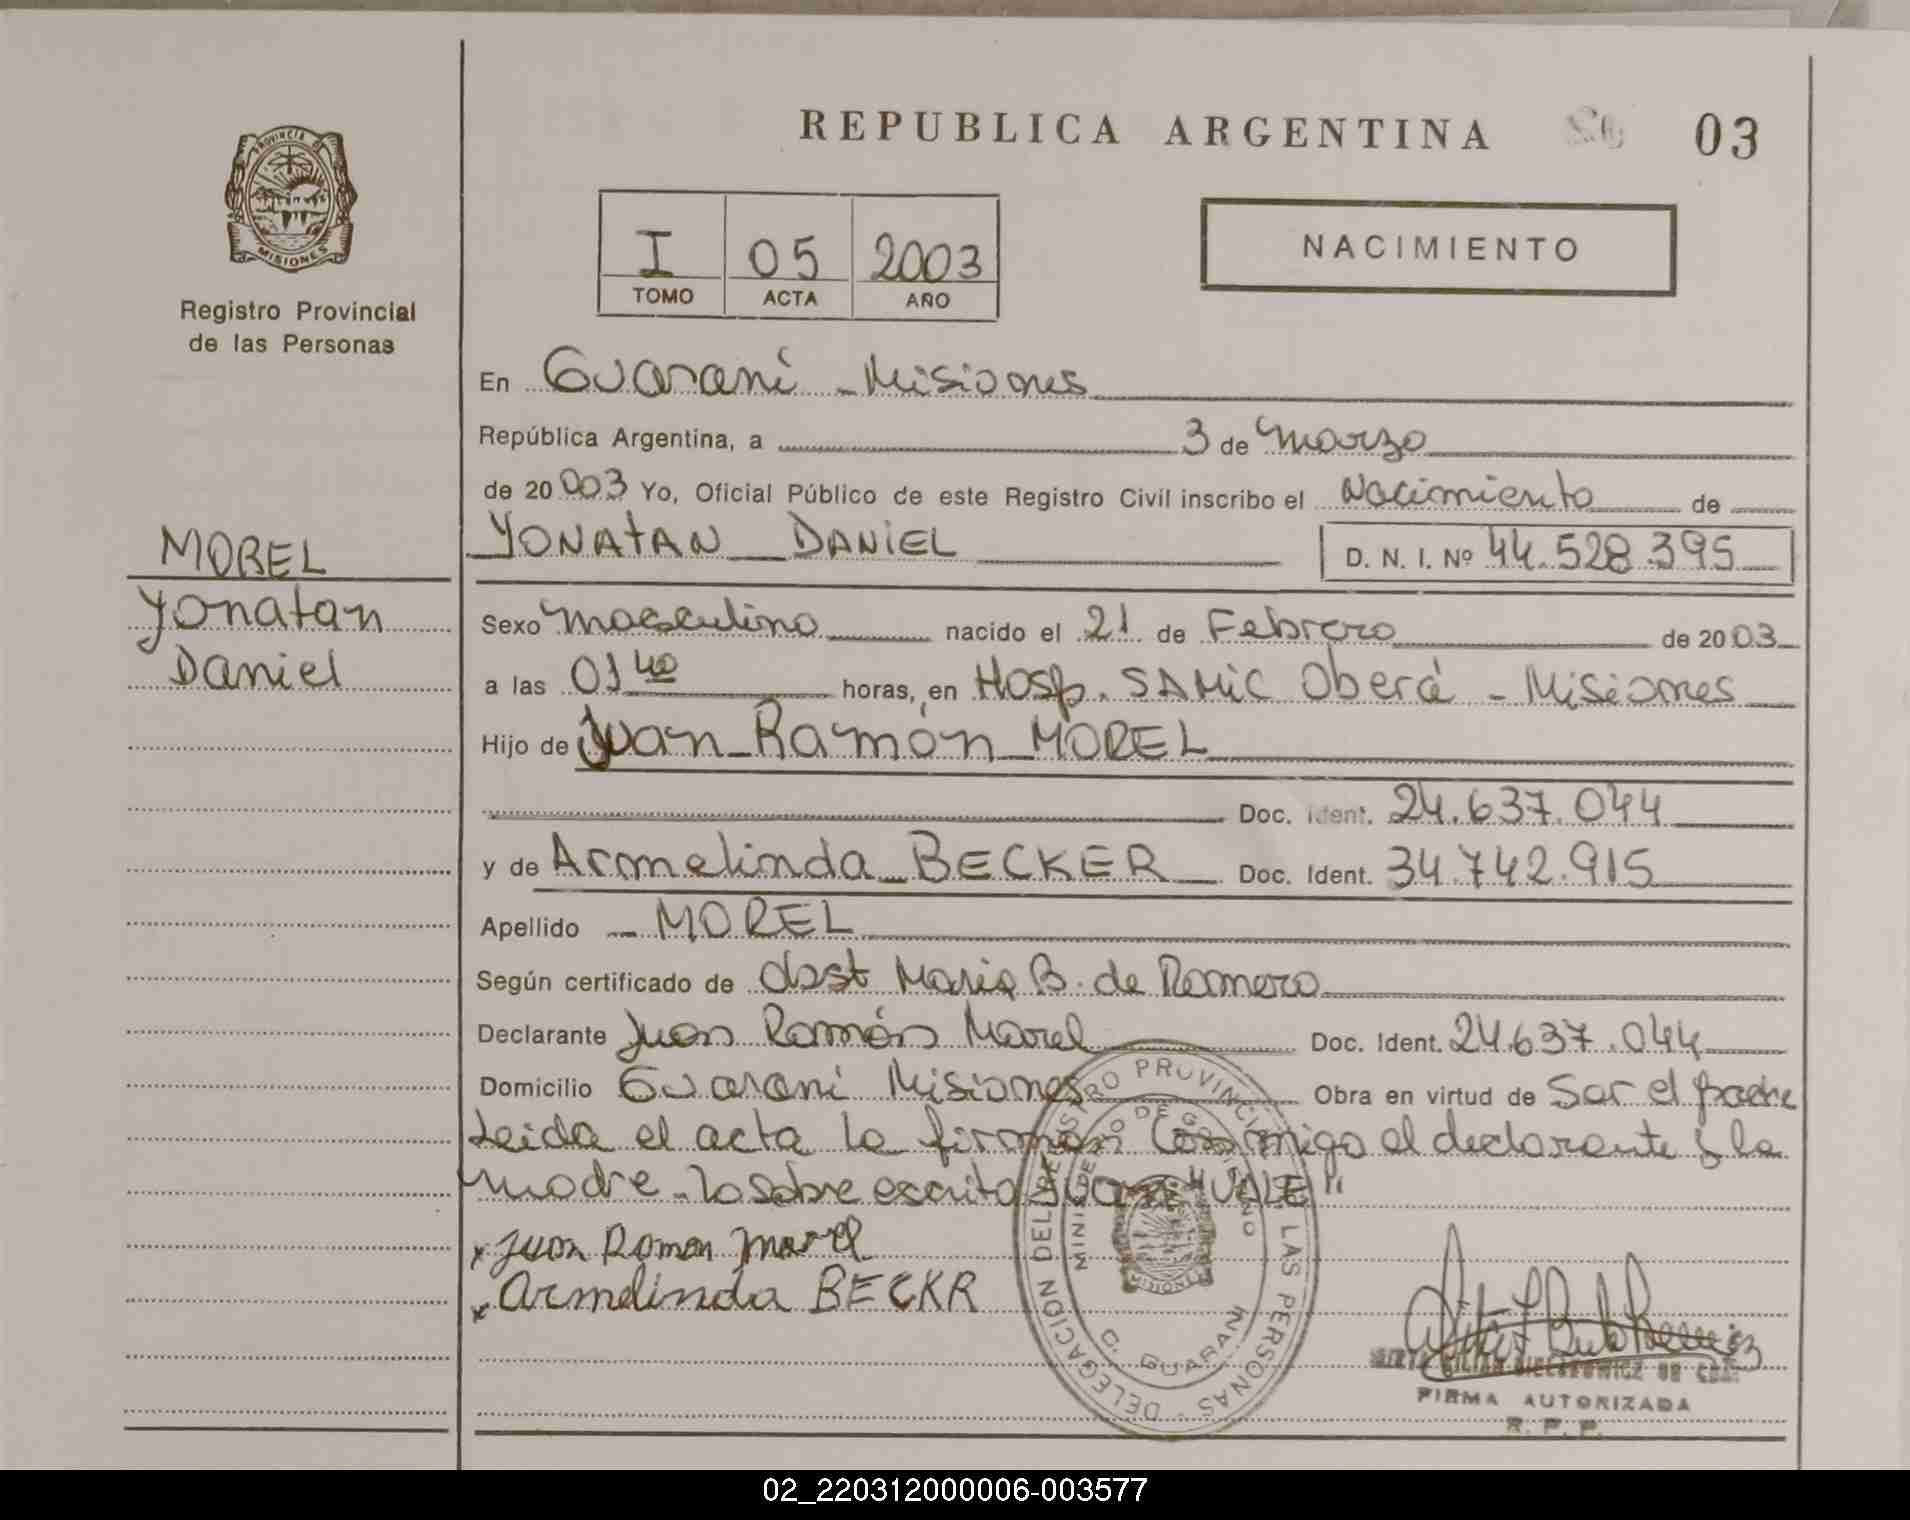 REPUBLICA ARGENTINA 03
PROVINCIA DE
MISIONES
Registro Provincial
de las Personas
I 05 2003
TOMO ACTA AÑO
NACIMIENTO
En Guaraní - Misiones
República Argentina, a 3 de Marzo
de 20 003 Yo, Oficial Público de este Registro Civil inscribo el Nacimiento de
YONATAN DANIEL D. N. I. Nº 44.528.395
MOREL
Yonatan
Daniel
Sexo Masculino nacido el 21 de Febrero de 20 03
a las 01 40 horas, en Hosp. SAMIC Oberá - Misiones
Hijo de Juan Ramón MOREL
Doc. Ident. 24.637.044
y de Armelinda BECKER Doc. Ident. 34.742.915
Apellido MOREL
Según certificado de Obst Maria B. de Romero
Declarante Juan Ramón Morel Doc. Ident. 24.637.044
Domicilio Guaraní Misiones Obra en virtud de Ser el padre
Leida el acta la firman conmigo el declarante y la
madre. lo sobre escrito Juan "VALE"
x Juan Ramon Morel
x Armelinda BECKR
DELEGACION DEL REGISTRO PROVINCIAL DE LAS PERSONAS
MINISTERIO DE GOBIERNO
MISIONES
G. GUARANI
FIRMA AUTORIZADA
R. P. P.
02_220312000006-003577